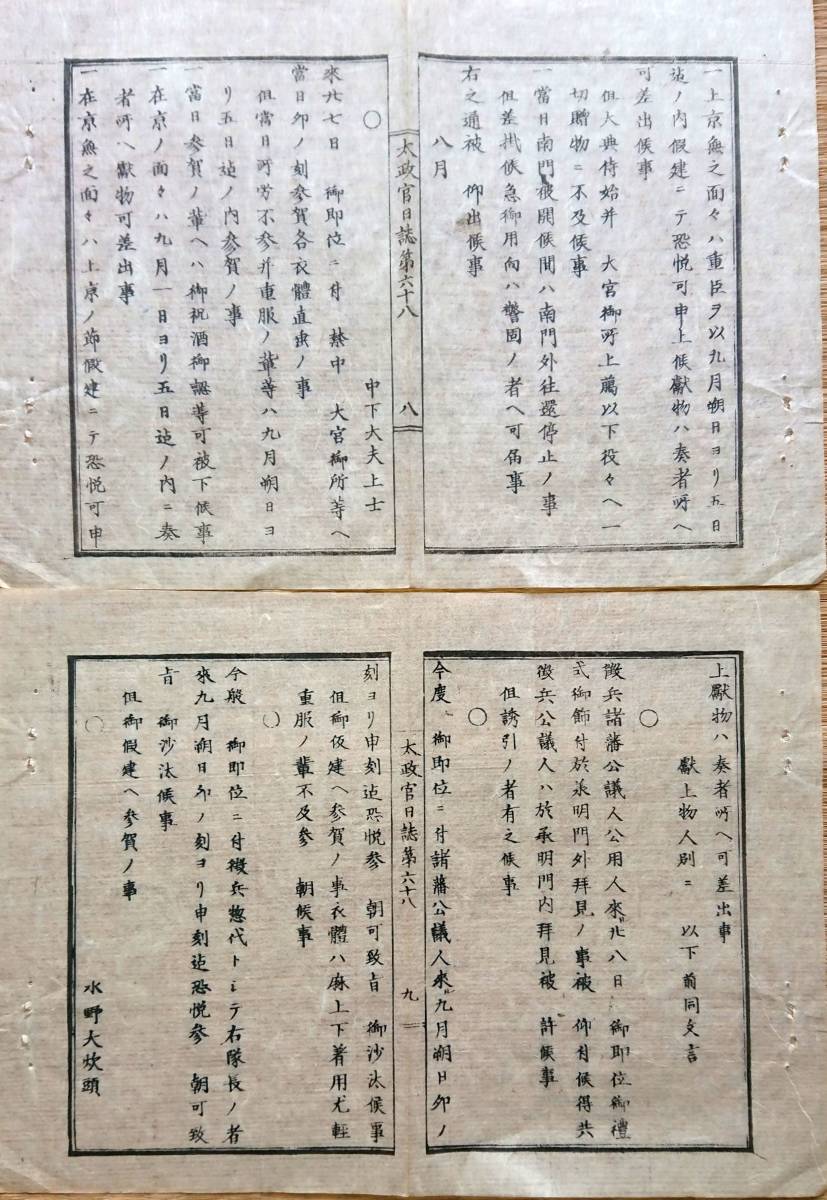 一上京無之面々ハ重臣ヲ以九月朔日ヨリ五日
迠ノ内假建ニテ恐悦可申上候獻物ハ奏者所ヘ
可差出候事
但大典侍始并 大宮御所上﨟以下役々ヘ一
切贈物ニ不及候事
一當日南門被開候間ハ南門外往還停止ノ事
但差掛候急御用向ハ警固ノ者ヘ可届事
右之通被 仰出候事
八月
太政官日誌第六十八 八
〇 中下大夫上士
來廿七日 御即位ニ付 禁中 大宮御所等ヘ
當日卯ノ刻參賀各衣體直垂ノ事
但當日所労不參并重服ノ輩等ハ九月朔日ヨ
リ五日迠ノ内參賀ノ事
一當日參賀ノ輩ヘハ御祝酒御認等可被下候事
一在京ノ面々ハ九月一日ヨリ五日迠ノ内ニ奏
者所ヘ獻物可差出事
一在京無之面々ハ上京ノ節假建ニテ恐悦可申
上獻物ハ奏者所ヘ可差出事
獻上物人別ニ 以下前同文言
〇
徴兵諸藩公議人公用人來廿八日 御即位御禮
式御飾付於承明門外拜見ノ事被 仰付候得共
徴兵公議人ハ於承明門内拜見被 許候事
但誘引ノ者有之候事
〇
今度 御即位ニ付諸藩公議人來九月朔日卯ノ
太政官日誌第六十八 九
刻ヨリ申刻迠恐悦參 朝可致旨 御沙汰候事
但御仮建ヘ參賀ノ事衣體ハ麻上下着用尤輕
重服ノ輩不及參 朝候事
〇
今般 御即位ニ付徴兵惣代トシテ右隊長ノ者
來九月朔日卯ノ刻ヨリ申刻迠恐悦參 朝可致
旨 御沙汰候事
但御假建ヘ參賀ノ事
〇 水野大炊頭